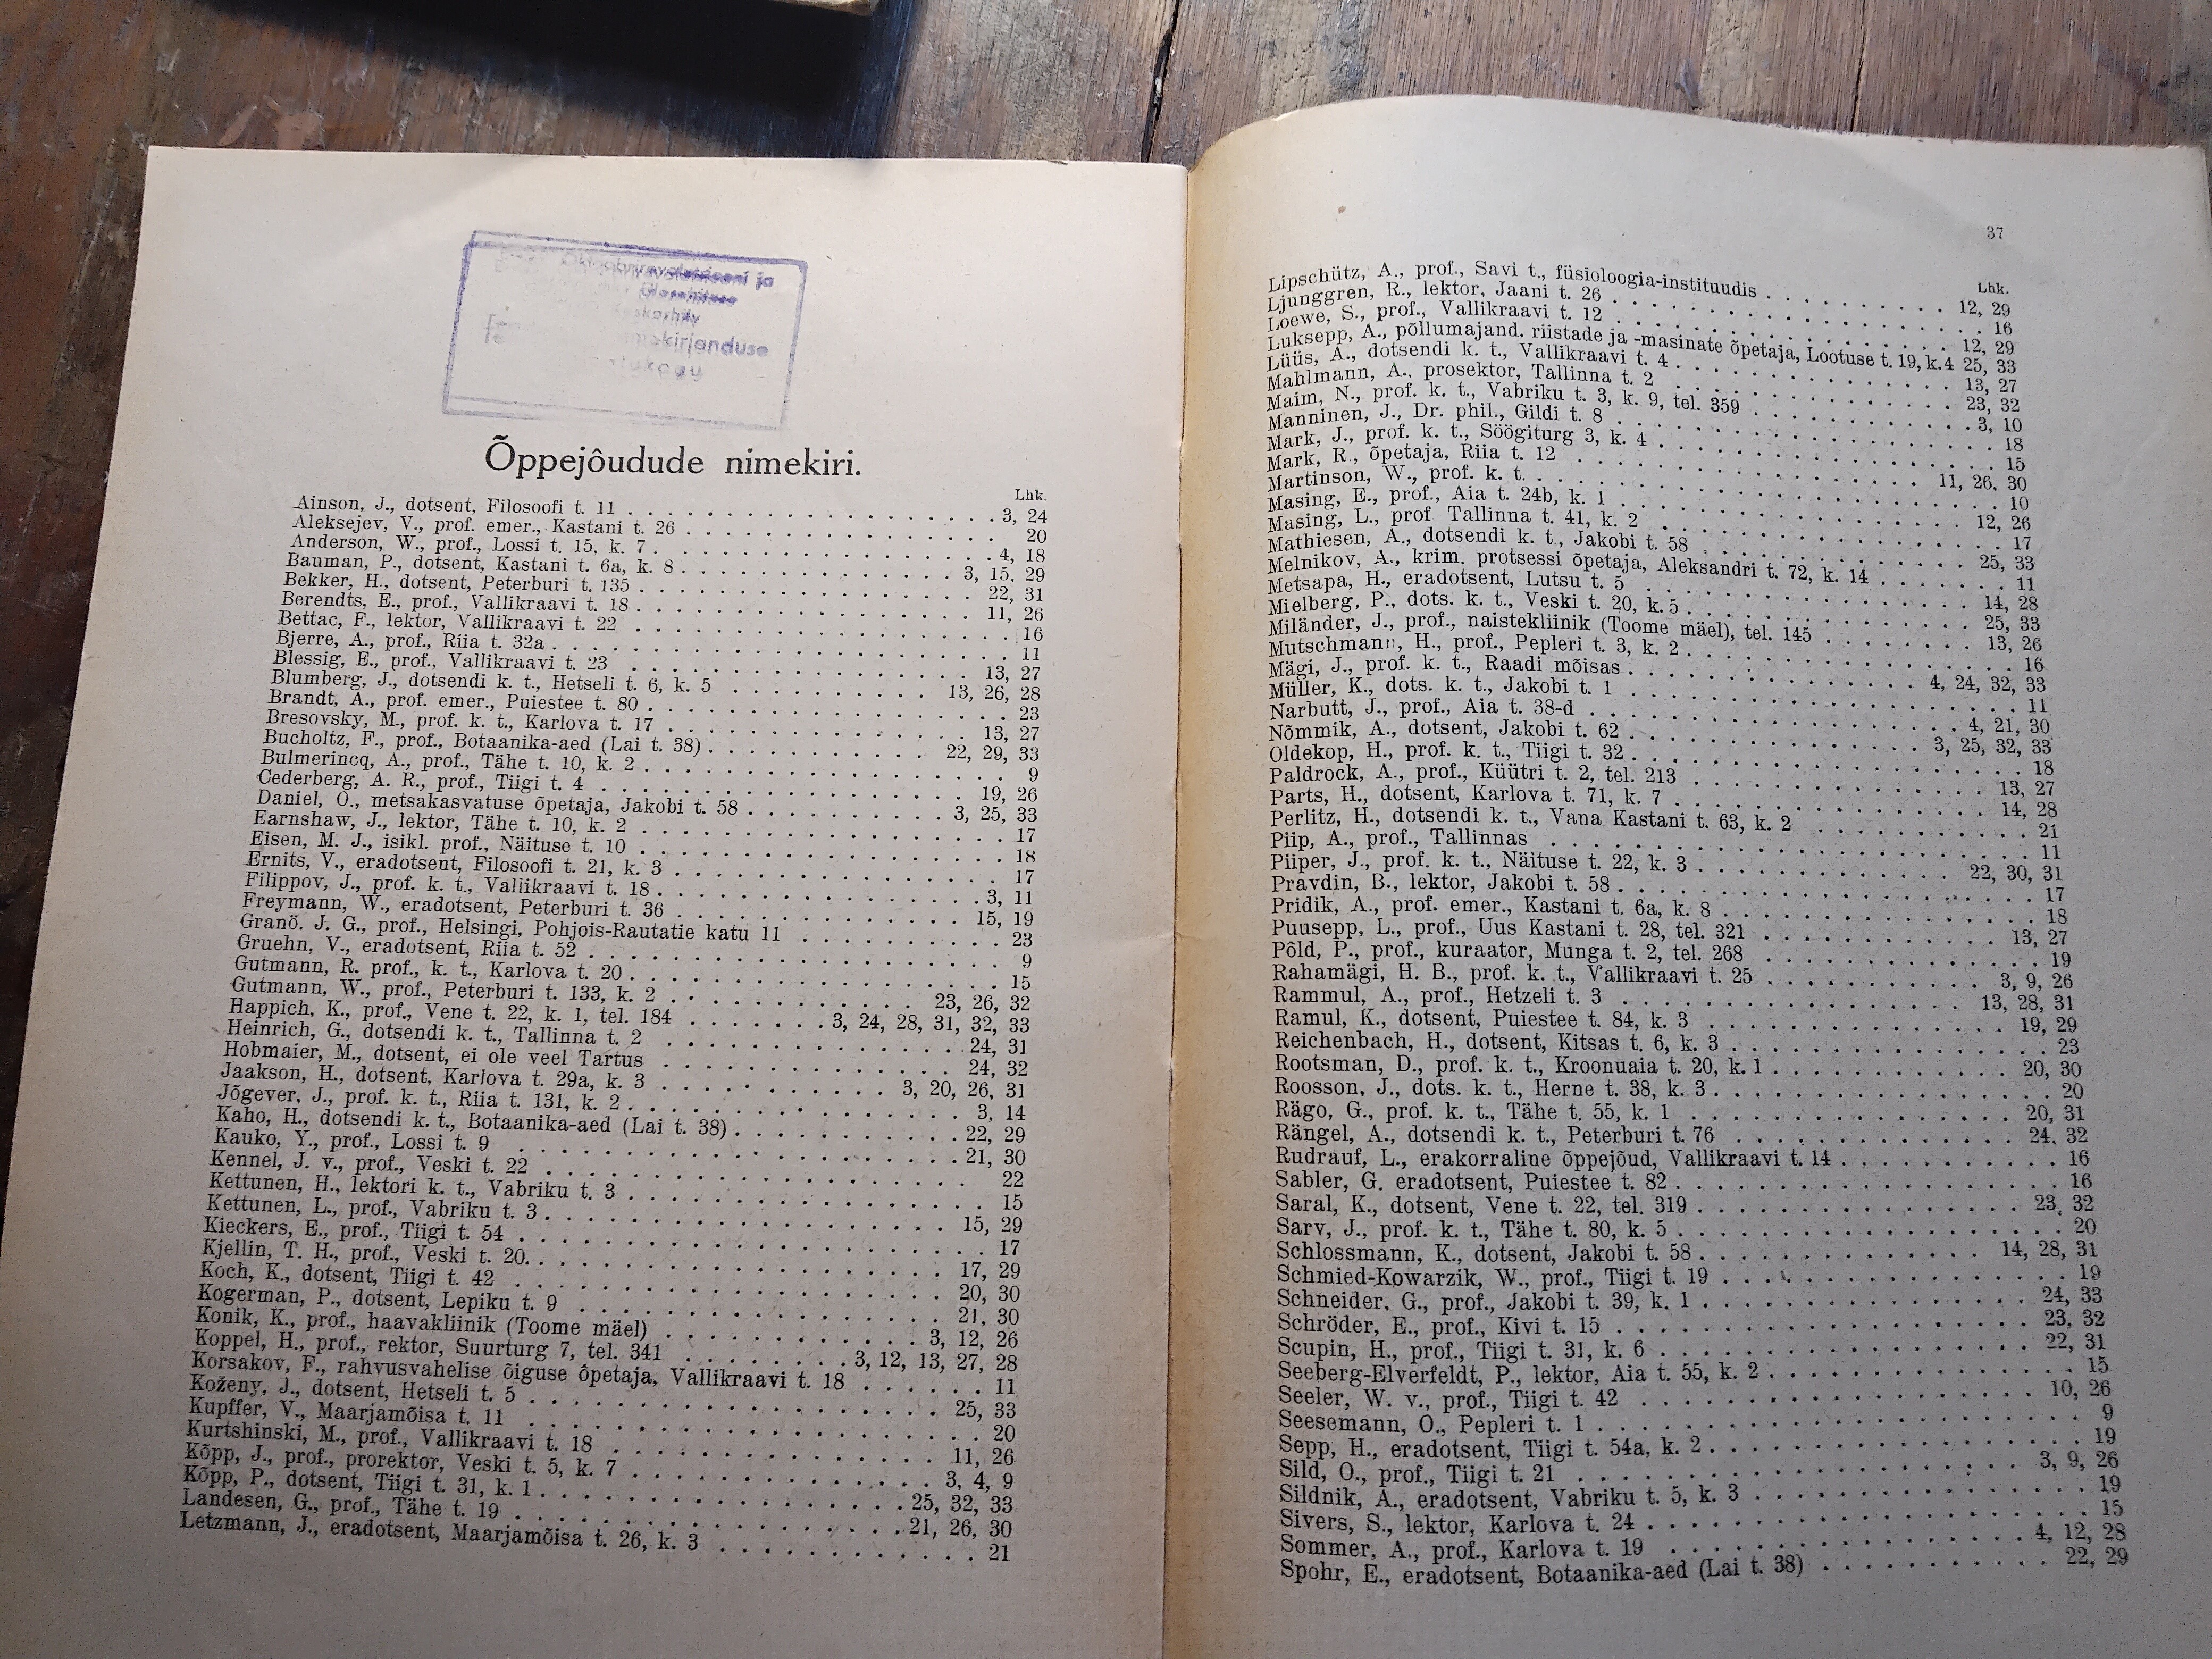 Oktoobrirevolutsiooni ja
Õppejôudude nimekiri.
Lhk.
Ainson, J., dotsent, Filosoofi t. 11 . . . 3, 24
Aleksejev, V., prof. emer., Kastani t. 26 . . . 20
Anderson, W., prof., Lossi t. 15, k. 7 . . . 4, 18
Bauman, P., dotsent, Kastani t. 6a, k. 8 . . . 3, 15, 29
Bekker, H., dotsent, Peterburi t. 135 . . . 22, 31
Berendts, E., prof., Vallikraavi t. 18 . . . 11, 26
Bettac, F., lektor, Vallikraavi t. 22 . . . 16
Bjerre, A., prof., Riia t. 32a . . . 11
Blessig, E., prof., Vallikraavi t. 23 . . . 13, 27
Blumberg, J., dotsendi k. t., Hetseli t. 6, k. 5 . . . 13, 26, 28
Brandt, A., prof. emer., Puiestee t. 80 . . . 23
Bresovsky, M., prof. k. t., Karlova t. 17 . . . 13, 27
Bucholtz, F., prof., Botaanika-aed (Lai t. 38) . . . 22, 29, 33
Bulmerincq, A., prof., Tähe t. 10, k. 2 . . . 9
Cederberg, A. R., prof., Tiigi t. 4 . . . 19, 26
Daniel, O., metsakasvatuse õpetaja, Jakobi t. 58 . . . 3, 25, 33
Earnshaw, J., lektor, Tähe t. 10, k. 2 . . . 17
Eisen, M. J., isikl. prof., Näituse t. 10 . . . 18
Ernits, V., eradotsent, Filosoofi t. 21, k. 3 . . . 17
Filippov, J., prof. k. t., Vallikraavi t. 18 . . . 3, 11
Freymann, W., eradotsent, Peterburi t. 36 . . . 15, 19
Granö. J. G., prof., Helsingi, Pohjois-Rautatie katu 11 . . . 23
Gruehn, V., eradotsent, Riia t. 52 . . . 9
Gutmann, R. prof., k. t., Karlova t. 20 . . . 15
Gutmann, W., prof., Peterburi t. 133, k. 2 . . . 23, 26, 32
Happich, K., prof., Vene t. 22, k. 1, tel. 184 . . . 3, 24, 28, 31, 32, 33
Heinrich, G., dotsendi k. t., Tallinna t. 2 . . . 24, 31
Hobmaier, M., dotsent, ei ole veel Tartus . . . 24, 32
Jaakson, H., dotsent, Karlova t. 29a, k. 3 . . . 3, 20, 26, 31
Jõgever, J., prof. k. t., Riia t. 131, k. 2 . . . 3, 14
Kaho, H., dotsendi k. t., Botaanika-aed (Lai t. 38) . . . 22, 29
Kauko, Y., prof., Lossi t. 9 . . . 21, 30
Kennel, J. v., prof., Veski t. 22 . . . 22
Kettunen, H., lektori k. t., Vabriku t. 3 . . . 15
Kettunen, L., prof., Vabriku t. 3 . . . 15, 29
Kieckers, E., prof., Tiigi t. 54 . . . 17
Kjellin, T. H., prof., Veski t. 20. . . . 17, 29
Koch, K., dotsent, Tiigi t. 42 . . . 20, 30
Kogerman, P., dotsent, Lepiku t. 9 . . . 21, 30
Konik, K., prof., haavakliinik (Toome mäel) . . . 3, 12, 26
Koppel, H., prof., rektor, Suurturg 7, tel. 341 . . . 3, 12, 13, 27, 28
Korsakov, F., rahvusvahelise õiguse ôpetaja, Vallikraavi t. 18 . . . 11
Koženy, J., dotsent, Hetseli t. 5 . . . 25, 33
Kupffer, V., Maarjamõisa t. 11 . . . 20
Kurtshinski, M., prof., Vallikraavi t. 18 . . . 11, 26
Kõpp, J., prof., prorektor, Veski t. 5, k. 7 . . . 3, 4, 9
Kõpp, P., dotsent, Tiigi t. 31, k. 1 . . . 25, 32, 33
Landesen, G., prof., Tähe t. 19 . . . 21, 26, 30
Letzmann, J., eradotsent, Maarjamõisa t. 26, k. 3 . . . 21
37
Lhk.
Lipschütz, A., prof., Savi t., füsioloogia-instituudis . . . 12, 29
Ljunggren, R., lektor, Jaani t. 26 . . . 16
Loewe, S., prof., Vallikraavi t. 12 . . . 12, 29
Luksepp, A., põllumajand. riistade ja -masinate õpetaja, Lootuse t. 19, k. 4 25, 33
Lüüs, A., dotsendi k. t., Vallikraavi t. 4 . . . 13, 27
Mahlmann, A., prosektor, Tallinna t. 2 . . . 23, 32
Maim, N., prof. k. t., Vabriku t. 3, k. 9, tel. 359 . . . 3, 10
Manninen, J., Dr. phil., Gildi t. 8 . . . 18
Mark, J., prof. k. t., Söögiturg 3, k. 4 . . . 15
Mark, R., õpetaja, Riia t. 12 . . . 11, 26, 30
Martinson, W., prof. k. t. . . . 10
Masing, E., prof., Aia t. 24b, k. 1 . . . 12, 26
Masing, L., prof Tallinna t. 41, k. 2 . . . 17
Mathiesen, A., dotsendi k. t., Jakobi t. 58 . . . 25, 33
Melnikov, A., krim. protsessi õpetaja, Aleksandri t. 72, k. 14 . . . 11
Metsapa, H., eradotsent, Lutsu t. 5 . . . 14, 28
Mielberg, P., dots. k. t., Veski t. 20, k. 5 . . . 25, 33
Miländer, J., prof., naistekliinik (Toome mäel), tel. 145 . . . 13, 26
Mutschmann, H., prof., Pepleri t. 3, k. 2 . . . 16
Mägi, J., prof. k. t., Raadi mõisas . . . 4, 24, 32, 33
Müller, K., dots. k. t., Jakobi t. 1 . . . 11
Narbutt, J., prof., Aia t. 38-d . . . 4, 21, 30
Nõmmik, A., dotsent, Jakobi t. 62 . . . 3, 25, 32, 33
Oldekop, H., prof. k. t., Tiigi t. 32 . . . 18
Paldrock, A., prof., Küütri t. 2, tel. 213 . . . 13, 27
Parts, H., dotsent, Karlova t. 71, k. 7 . . . 14, 28
Perlitz, H., dotsendi k. t., Vana Kastani t. 63, k. 2 . . . 21
Piip, A., prof., Tallinnas . . . 11
Piiper, J., prof. k. t., Näituse t. 22, k. 3 . . . 22, 30, 31
Pravdin, B., lektor, Jakobi t. 58 . . . 17
Pridik, A., prof. emer., Kastani t. 6a, k. 8 . . . 18
Puusepp, L., prof., Uus Kastani t. 28, tel. 321 . . . 13, 27
Põld, P., prof., kuraator, Munga t. 2, tel. 268 . . . 19
Rahamägi, H. B., prof. k. t., Vallikraavi t. 25 . . . 3, 9, 26
Rammul, A., prof., Hetzeli t. 3 . . . 13, 28, 31
Ramul, K., dotsent, Puiestee t. 84, k. 3 . . . 19, 29
Reichenbach, H., dotsent, Kitsas t. 6, k. 3 . . . 23
Rootsman, D., prof. k. t., Kroonuaia t. 20, k. 1 . . . 20, 30
Roosson, J., dots. k. t., Herne t. 38, k. 3 . . . 20
Rägo, G., prof. k. t., Tähe t. 55, k. 1 . . . 20, 31
Rängel, A., dotsendi k. t., Peterburi t. 76 . . . 24, 32
Rudrauf, L., erakorraline õppejõud, Vallikraavi t. 14 . . . 16
Sabler, G. eradotsent, Puiestee t. 82 . . . 16
Saral, K., dotsent, Vene t. 22, tel. 319 . . . 23, 32
Sarv, J., prof. k. t., Tähe t. 80, k. 5 . . . 20
Schlossmann, K., dotsent, Jakobi t. 58 . . . 14, 28, 31
Schmied-Kowarzik, W., prof., Tiigi t. 19 . . . 19
Schneider, G., prof., Jakobi t. 39, k. 1 . . . 24, 33
Schröder, E., prof., Kivi t. 15 . . . 23, 32
Scupin, H., prof., Tiigi t. 31, k. 6 . . . 22, 31
Seeberg-Elverfeldt, P., lektor, Aia t. 55, k. 2 . . . 15
Seeler, W. v., prof., Tiigi t. 42 . . . 10, 26
Seesemann, O., Pepleri t. 1 . . . 9
Sepp, H., eradotsent, Tiigi t. 54a, k. 2 . . . 19
Sild, O., prof., Tiigi t. 21 . . . 3, 9, 26
Sildnik, A., eradotsent, Vabriku t. 5, k. 3 . . . 19
Sivers, S., lektor, Karlova t. 24 . . . 15
Sommer, A., prof., Karlova t. 19 . . . 4, 12, 28
Spohr, E., eradotsent, Botaanika-aed (Lai t. 38) . . . 22, 29